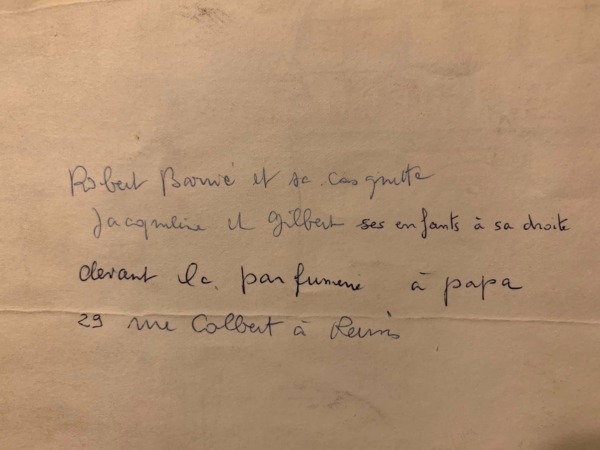 Robert Barrié et sa casquette
Jacqueline et Gilbert ses enfants à sa droite
devant la parfumerie à papa
29 rue Colbert à Reims